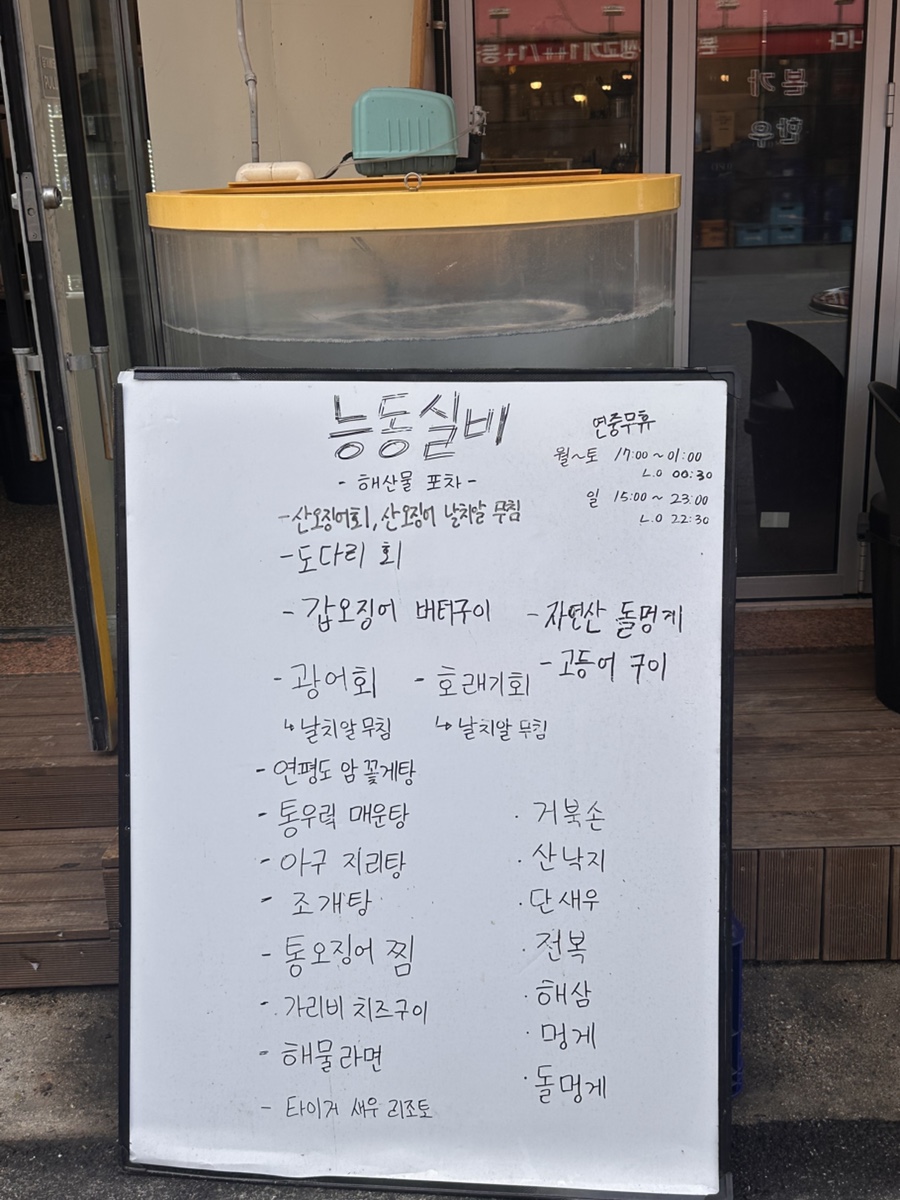 능동실비
- 해산물 포차 -
연중무휴
월~토 17:00 ~ 01:00
L.O 00:30
일 15:00 ~ 23:00
L.O 22:30
- 산오징어회, 산오징어 날치알 무침
- 도다리 회
- 갑오징어 버터구이 - 자연산 돌멍게
- 광어회 - 호래기회 - 고등어 구이
↳ 날치알 무침 ↳ 날치알 무침
- 연평도 암 꽃게탕
- 통우럭 매운탕
- 아구 지리탕
- 조개탕
- 통오징어 찜
- 가리비 치즈구이
- 해물라면
- 타이거 새우 리조또
· 거북손
· 산낙지
· 단새우
· 전복
· 해삼
· 멍게
· 돌멍게
본가
한우